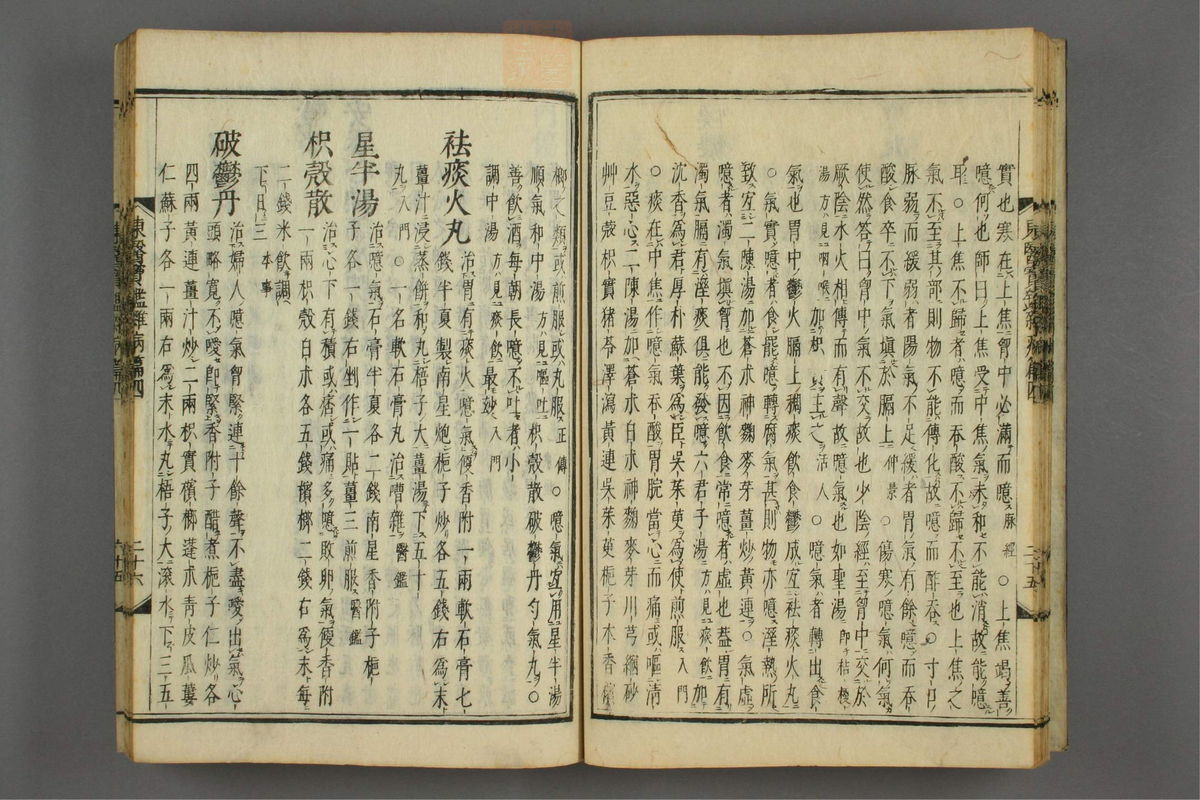 實也寒在上焦胷中必滿而噫脉經○上焦竭善
噫何也師曰上焦受中焦氣未和不能消故能噫
耳○上焦不歸者噫而吞酸不歸不至也上焦之
氣不至其部則物不能傳化故噫而酢吞○寸口
脉弱而緩弱者陽氣不足緩者胃氣有餘噫而吞
酸食卒不下氣塡於膈上仲景○傷寒噫氣何氣
使然答曰胷中氣不交故也少陰經至胷中交於
厥陰水火相傳而有聲故噫氣也如聖湯即桔梗
湯方見咽喉加枳 主之活人○噫氣者轉出食
氣也胃中鬱火膈上稠痰飲食鬱成宜祛痰火丸
○氣實噫者食罷噫轉腐氣甚則物亦噫溼熱所
致宜二陳湯加蒼朮神麴麥芽薑炒黃連○氣虛
噫者濁氣塡胷也不因飲食常噫者虛也盖胃有
濁氣膈有溼痰俱能發噫六君子湯方見痰飲加
沈香爲君厚朴蘇葉爲臣吳茱萸爲使煎服入門
○痰在中焦作噫氣吞酸胃脘當心而痛或嘔淸
水惡心二陳湯加蒼朮白朮神麴麥芽川芎縮砂
艸豆蔲枳實猪苓澤瀉黃連吳茱萸梔子木香檳
榔之類或煎服或丸服正傳○噫氣宜用星半湯
順氣和中湯方見嘔吐枳殼散破鬱丹勻氣丸○
善飲酒每朝長噫不吐者小
調中湯方見痰飲最玅入門
祛痰火丸治胃有痰火噫氣香附一兩軟石膏七
錢半夏製南星炮梔子炒各五錢右爲末
薑汁浸蒸餠和丸梧子大薑湯下五十
丸入門○一名軟石膏丸治嘈雜醫鑑
星半湯治噫氣石膏半夏各二錢南星香附子梔
子各一錢右剉作一貼薑三煎服醫鑑
枳殼散治心下有積或痞或痛多噫敗卵氣香附
一兩枳殼白朮各五錢檳榔二錢右爲末每
二錢米飲調
下日三本事
破鬱丹治婦人噫氣胷緊連十餘聲不盡噯出氣心
頭畧寬不噯即緊香附子醋煮梔子仁炒各
四兩黃連薑汁炒二兩枳實檳榔蓬朮靑皮瓜蔞
仁蘇子各一兩右爲末水丸梧子大滾水下三五
東醫寶鑑雜病篇四
二十五
東醫寶鑑雜病篇四
二十六